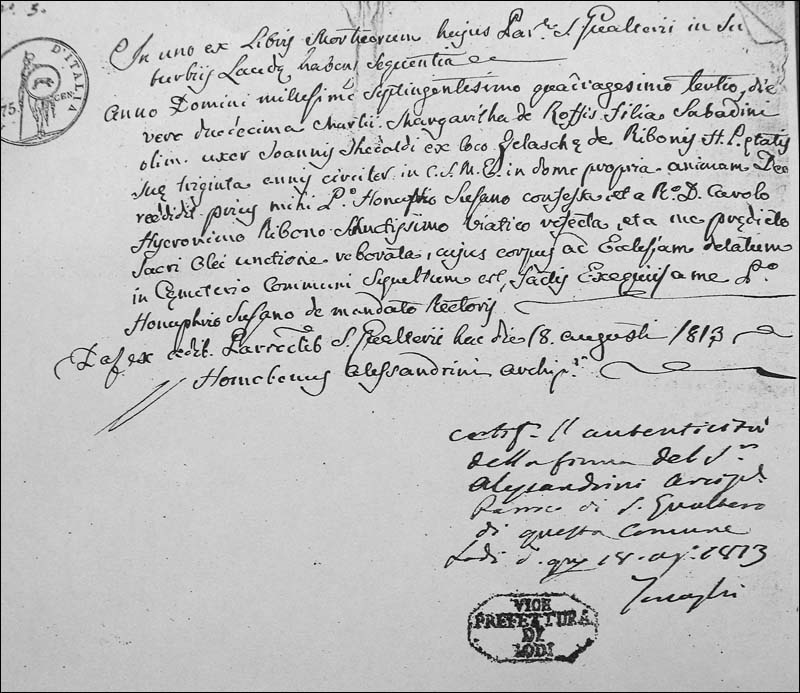 n.° 3.
D'ITALIA
75. CEN.
In uno ex Libris Mortuorum hujus Par.lis S. Gualterii in Su
burbiis Laudę habent Sequentia
Anno Domini millesimo Septingentesimo quadragesimo tertio, die
vero duodecima Martii. Margaritha de Rossis Filia Sabadini
olim uxor Joannis ex loco de Ribonis H. P. ętatis
suę triginta annis circiter in C. S. M. E. in domo propria animam Deo
reddidit. prius mihi P.o Honuphrio Sufano confessa, et a R.o D. Carolo
Hyeronimo Ribono Sanctissimo Viatico refecta, et a me prędicto
Sacri Olei unctione roborata, cujus corpus ad Eclesiam delatum
in Cęmeterio Communi Sepultum est, factis Exequiis a me P.o
Honuphrio Sufano de mandato Rectoris
Dat. ex ędib. Parrœlib S. Gualterii hac die 18. augusti 1813
Homobonus Alessandrini Archip.r
certif.a l'autenticità
della firma del S.r
Alessandrini Arcip.e
Parroco di S. Gualtero
di questa Comune
Lodi d. 18. ag.o 1813
VICE
PREFETTURA
DI
LODI